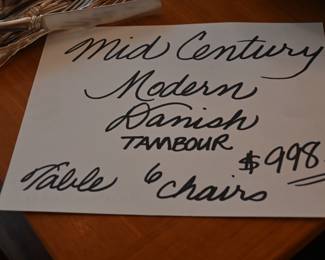 Mid Century
Modern
Danish
TAMBOUR
$998
Table 6 Chairs